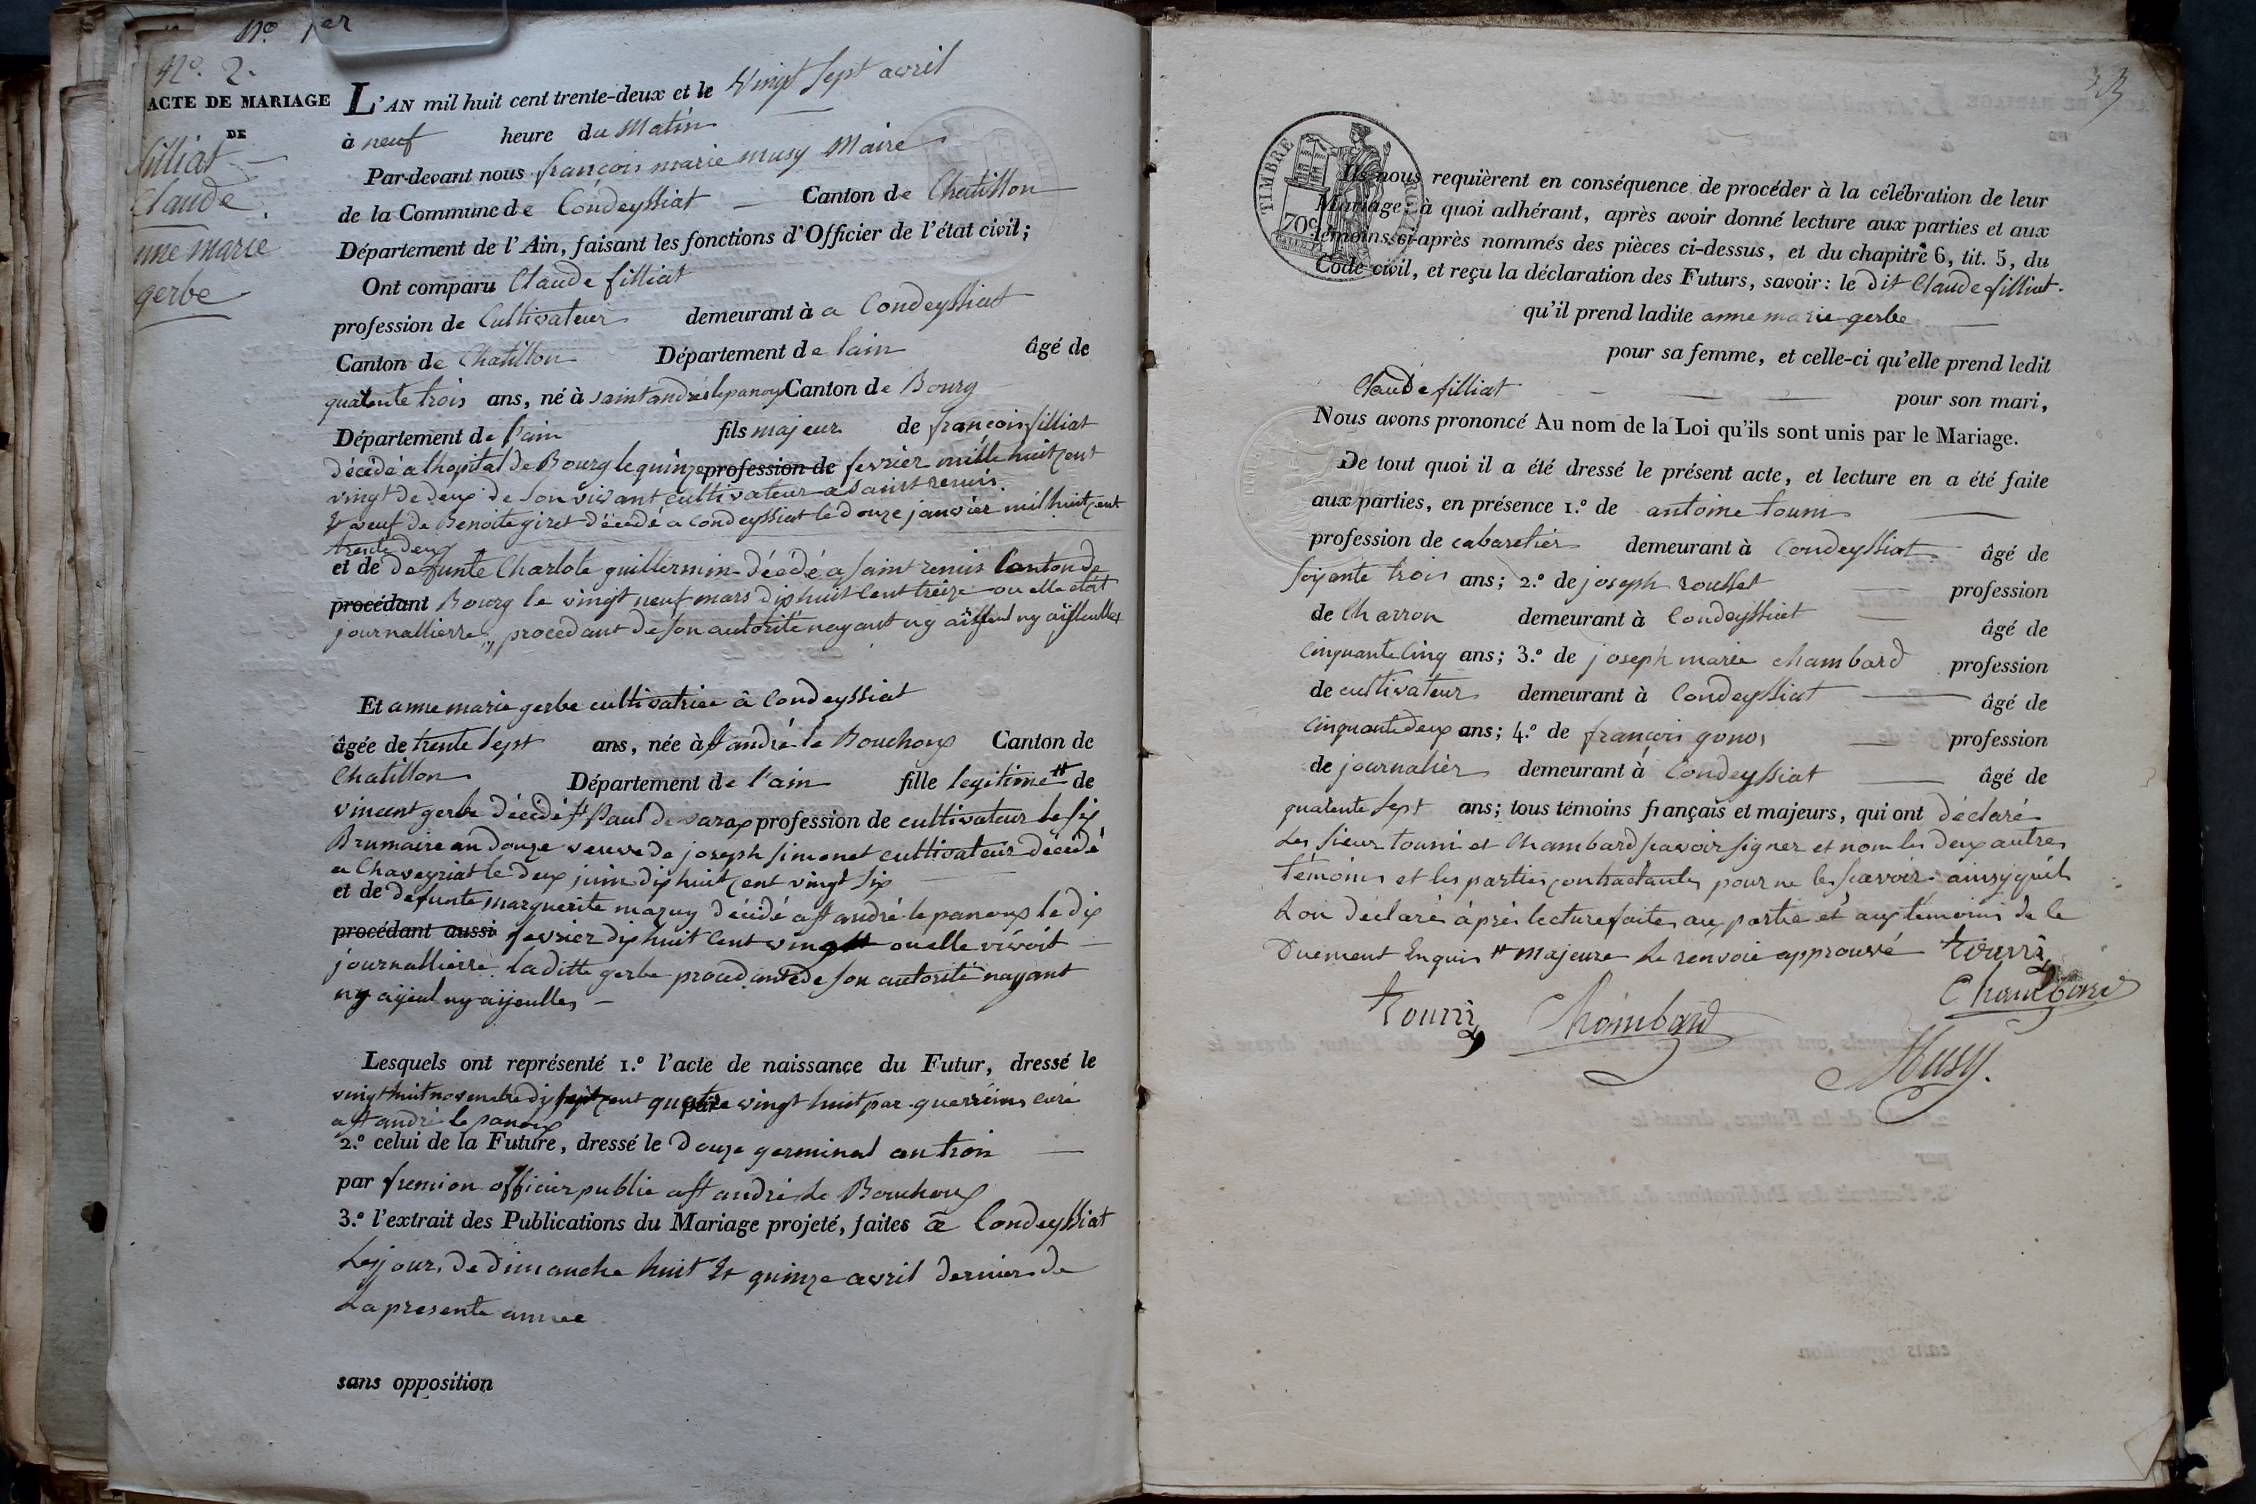 N.o 1er
N.o 2.
ACTE DE MARIAGE
DE
filliat
Claude
anne marie
gerbe
L'AN mil huit cent trente-deux et le vingt sept avril
à neuf heure du Matin
Par-devant nous françois marie musy Maire
de la Commune de Condeyssiat Canton de Chatillon
Département de l'Ain, faisant les fonctions d'Officier de l'état civil;
Ont comparu Claude filliat
profession de Cultivateur demeurant à a Condeyssiat
Canton de Chatillon Département de lain âgé de
quatente trois ans, né à saint andré lepanoy Canton de Bourg
Département de l'ain fils majeur de françois filliat
décédé a lhopital de Bourg le quinze profession de fevrier mille huit cent
vingt de deux de son vivant cultivateur a saint remis.
Et veuf de Benoite giret décédé a condeyssiat le douze janvier mil huit cent
trente deux
et de defunte Charlote guillermin décédé a saint remis Canton de
procédant Bourg le vingt neuf mars dix huit cent treize ou elle étoit
journallierre, procedant de son autorité nayant ny aÿeul ny aÿeulles
Et anne marie gerbe cultivatrice à Condeyssiat
âgée de trente sept ans, née à st andré le Bouchoux Canton de
Chatillon Département de l'ain fille legitime # de
vincent gerbe décédé st Paul de varax profession de cultivateur le six
Brumaire an douze veuve de joseph simonet cultivateur décédé
a Chaveyriat le deux juin dix huit cent vingt six
et de defunte marguerite mazuy décédé a st andré le panoux le dix
procédant aussi fevrier dix huit cent vingt ou elle vivoit
journallierre. laditte gerbe procedante de son autorité nayant
ny aÿeul ny aÿeulles
Lesquels ont représenté 1.o l'acte de naissance du Futur, dressé le
vingt huit novembre dix sept cent quatre vingt huit par guerreins curé
a st andré le panoux
2.o celui de la Future, dressé le douze germinal an trois
par fremion officier public a st andré le Bouchoux
3.o l'extrait des Publications du Mariage projeté, faites à Condeyssiat
Les jours de dimanche huit Et quinze avril dernier de
La presente année
sans opposition
TIMBRE ROYAL
70c
Ils nous requièrent en conséquence de procéder à la célébration de leur
Mariage; à quoi adhérant, après avoir donné lecture aux parties et aux
témoins ci-après nommés des pièces ci-dessus, et du chapitre 6, tit. 5, du
Code civil, et reçu la déclaration des Futurs, savoir: le dit Claude filliat.
qu'il prend ladite anne marie gerbe
pour sa femme, et celle-ci qu'elle prend ledit
Claude filliat
pour son mari,
Nous avons prononcé Au nom de la Loi qu'ils sont unis par le Mariage.
De tout quoi il a été dressé le présent acte, et lecture en a été faite
aux parties, en présence 1.o de antoine tourni
profession de cabaretier demeurant à Condeyssiat âgé de
soixente trois ans; 2.o de joseph rousset profession
de Charron demeurant à Condeyssiat âgé de
cinquante cinq ans; 3.o de joseph marie chambard profession
de cultivateur demeurant à Condeyssiat âgé de
cinquante deux ans; 4.o de françois gonos profession
de journalier demeurant à Condeyssiat âgé de
quatente sept ans; tous témoins français et majeurs, qui ont déclaré
Les sieur tourni et Chambard scavoir signer et nom les deux autres
témoins et les parties contractantes pour ne le scavoir. ainsy quils
Lon déclaré après lecture faites aux partie et aux témoins de le
Duement Enquis # majeure Le renvoie approuvé tourni
Chambard
tourni Chambard
Musy.